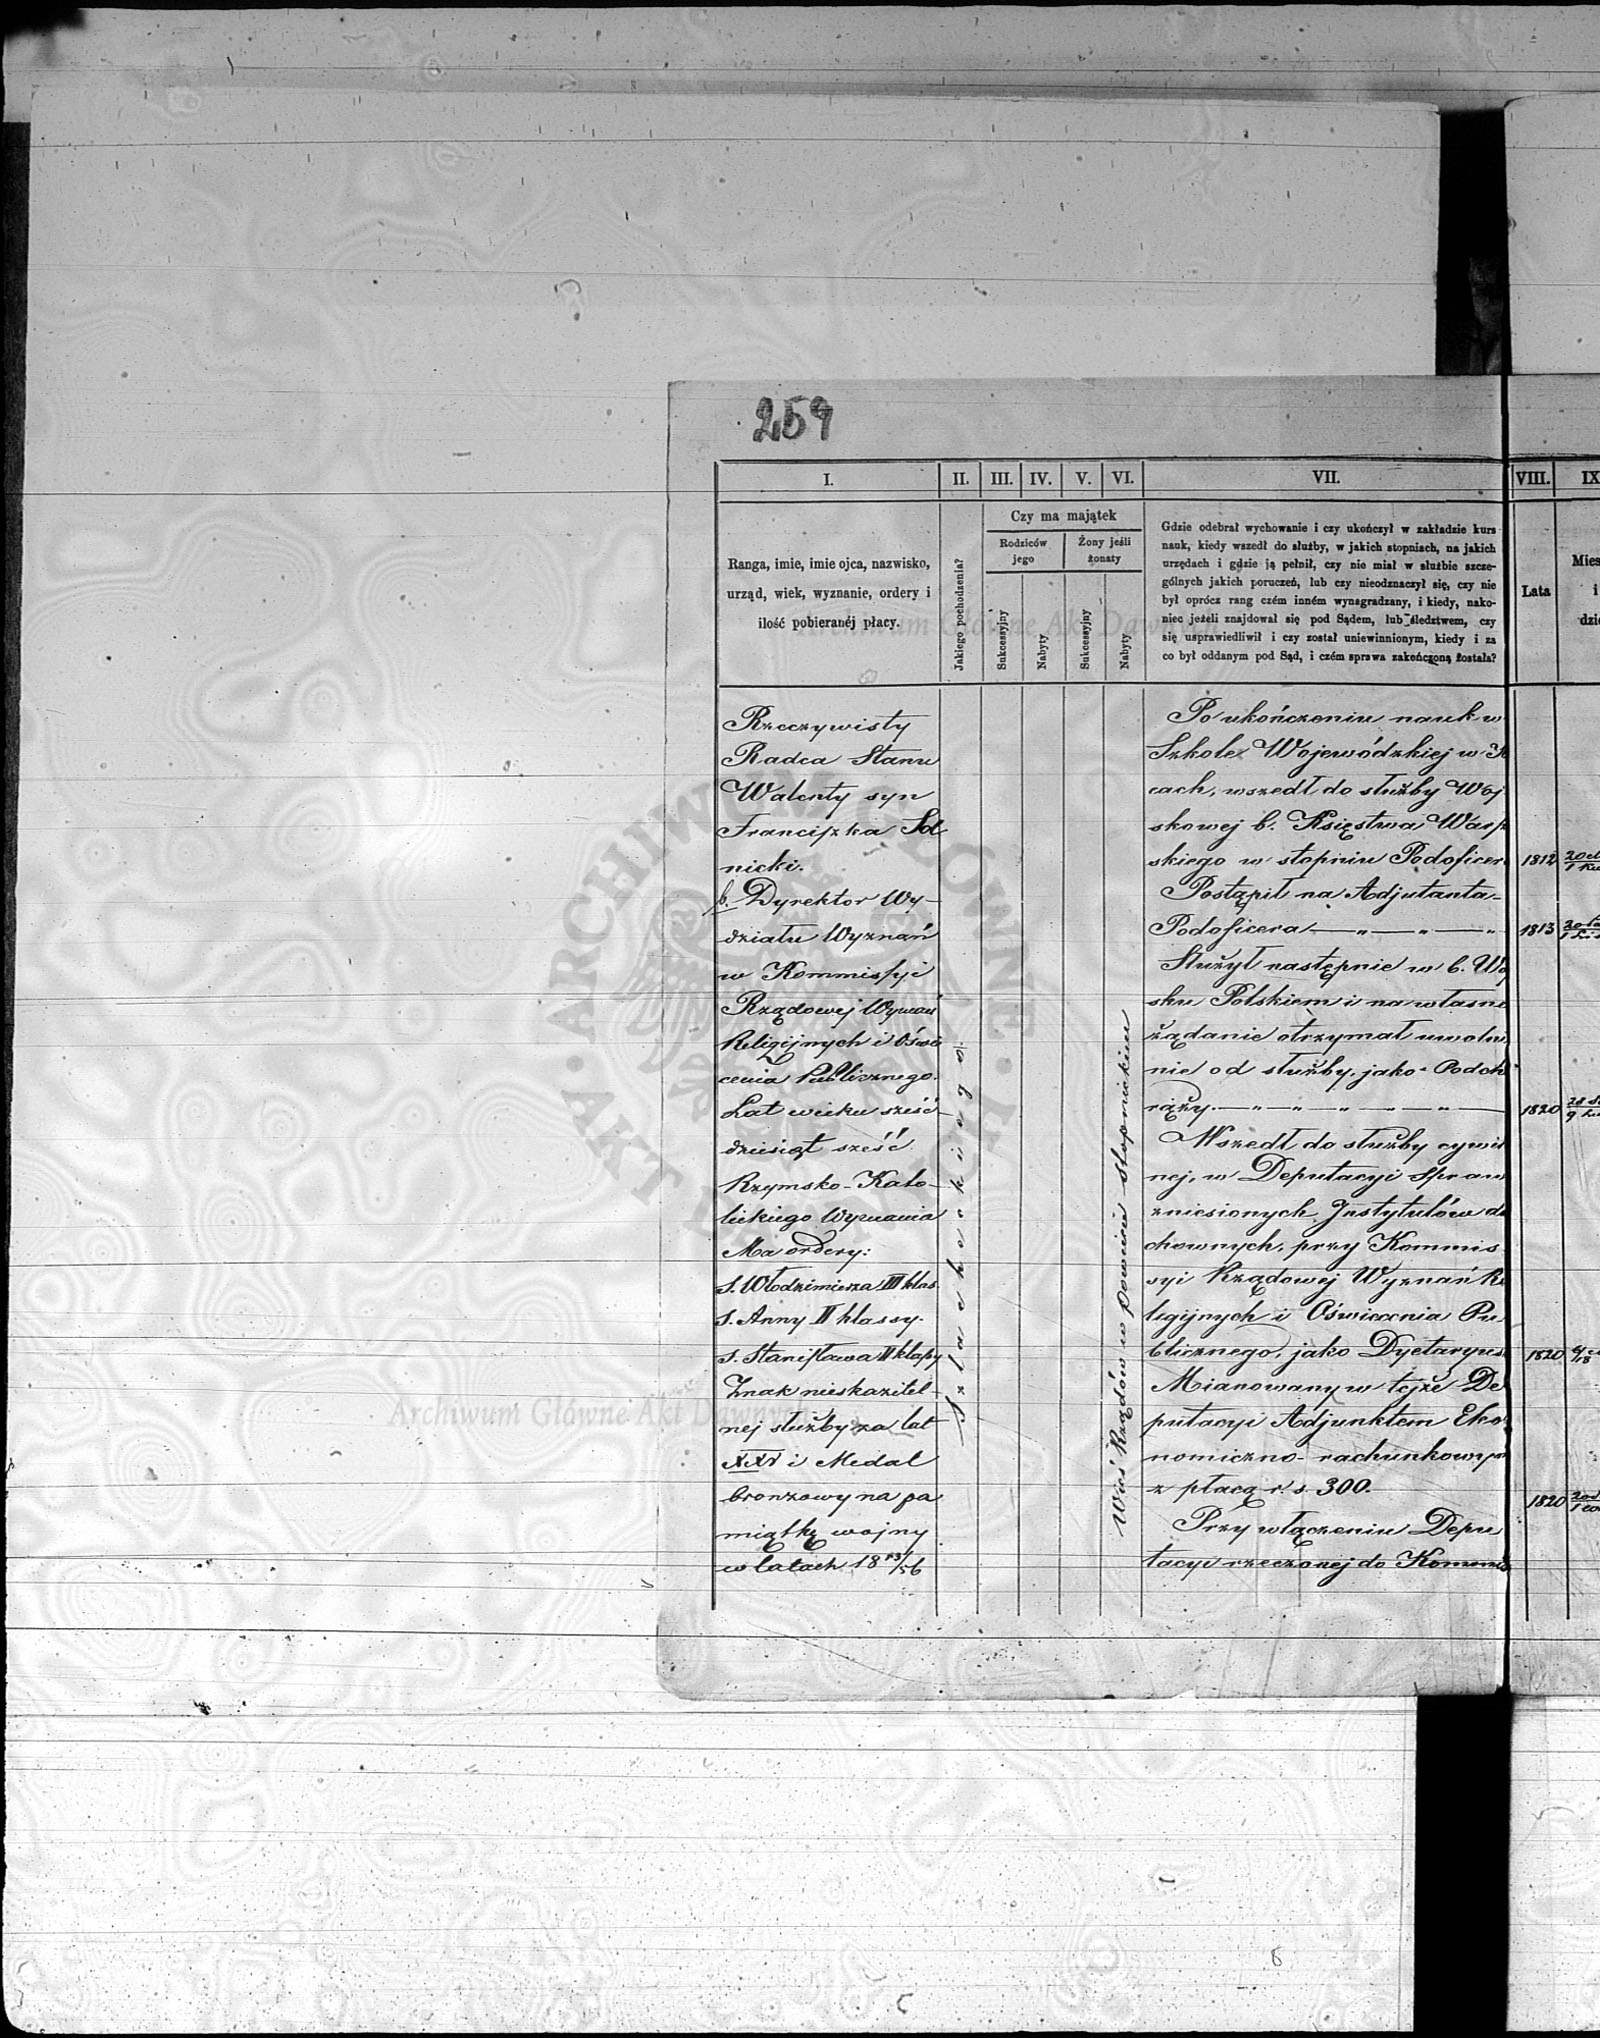 259
I.
II.
III.
IV.
V.
VI.
VII.
VIII.
IX
Ranga, imie, imie ojca, nazwisko,
urząd, wiek, wyznanie, ordery i
ilość pobieranéj płacy.
Jakiego pochodzenia?
Czy ma majątek
Rodziców
jego
Żony jeśli
żonaty
Sukcessyjny
Nabyty
Sukcessyjny
Nabyty
Gdzie odebrał wychowanie i czy ukończył w zakładzie kurs
nauk, kiedy wszedł do służby, w jakich stopniach, na jakich
urzędach i gdzie ją pełnił, czy nie miał w służbie szcze-
gólnych jakich poruczeń, lub czy nieodznaczył się, czy nie
był oprócz rang czém inném wynagradzany, i kiedy, nako-
niec jeżeli znajdował się pod Sądem, lub śledztwem, czy
się usprawiedliwił i czy został uniewinnionym, kiedy i za
co był oddanym pod Sąd, i czém sprawa zakończoną została?
Lata
Mies
i
dzie
Rzeczywisty
Radca Stanu
Walenty syn
Franciszka Sol
nicki.
b. Dyrektor Wy-
działu Wyznań
w Kommissyi
Rządowej Wyznań
Religijnych i Oświe
cenia Publicznego.
Lat wieku sześć-
dziesiąt sześć
Rzymsko-Kato-
lickiego Wyznania
Ma ordery:
S. Włodzimierza III klas.
S. Anny II klassy.
S. Stanisława II klassy
Znak nieskazitel-
nej służby za lat
XXV i Medal
bronzowy na pa
miątkę wojny
w latach 18 53/56
Szlacheckiego.
Wieś Rządów w Powiecie Stopnickim
Po ukończeniu nauk w
Szkole Wojewódzkiej w K
cach, wszedł do służby Woj
skowej b. Księstwa Warsz
skiego w stopniu Podoficer
1812
Postąpił na Adjutanta-
Podoficera — „ — „ — „
1813
Służył następnie w b. Woj
sku Polskiem i na własne
żądanie otrzymał uwolni
nie od służby, jako Podch
rąży. — „ — „ — „ — „ — „ —
1820
Wszedł do służby cywil
nej, w Deputacyi Spraw
zniesionych Instytutów du
chownych, przy Kommis
syi Rządowej Wyznań Re
ligijnych i Oświecenia Pu
blicznego, jako Dyetaryusz
1820
Mianowany w tejże De
putacyi Adjunktem Eko
nomiczno-rachunkowym
z płacą r. s. 300.
1820
Przy włączeniu Depu
tacyi rzeczonej do Kommis
Archiwum Główne Akt Dawnych
ARCHIWUM GŁÓWNE AKT DAWNYCH
Archiwum Główne Akt Dawnych